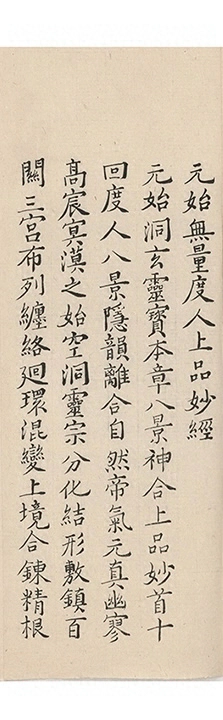 元始無量度人上品妙經
元始洞玄靈寶本章八景神合上品妙首十
回度人八景隱韻離合自然帝氣元真幽寥
高宸寞漠之始空洞靈宗分化結形敷鎮百
關三宮布列纏絡廻環混變上境合鍊精根